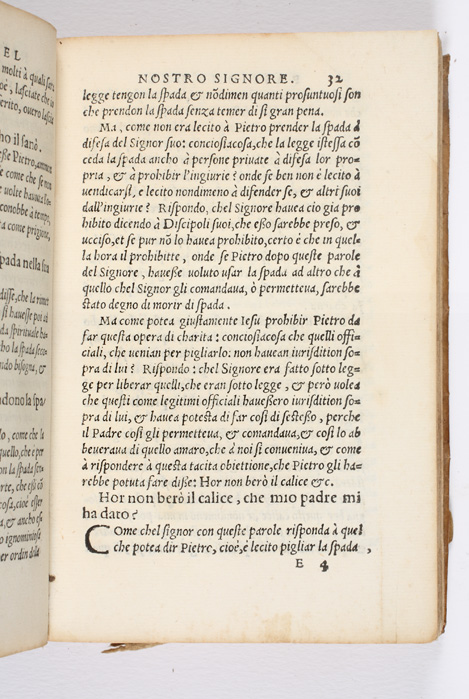 EL
molti à quali
NOSTRO SIGNORE. 32
legge tengon la spada & nõdimen quanti prosuntuosi son
che prendon la spada senza temer di sì gran pena.
Ma, come non era lecito à Pietro prender la spada à
difesa del Signor suo: conciosiacosa, che la legge istessa cõ
ceda la spada ancho à persone private à difesa lor pro-
pria, & à prohibir l'ingiurie? onde se ben non è lecito à
vendicarsi, e lecito nondimeno à difender se, & altri suoi
dall'ingiurie? Rispondo, chel Signore havea cio gia pro
hibito dicendo à Discipoli suoi, che esso sarebbe preso, &
ucciso, et se pur nõ lo havea prohibito, certo è che in quel-
la hora il prohibitte, onde se Pietro dopo queste parole
del Signore, havesse voluto usar la spada ad altro che à
quello chel Signor gli comandava, ò permetteva, sarebbe
stato degno di morir di spada.
Ma come potea giustamente Iesu prohibir Pietro da
far questa opera di charita: conciosiacosa che quelli offi-
ciali, che venian per pigliarlo: non havean iurisdition so-
pra di lui? Rispondo: chel Signore era fatto sotto leg-
ge per liberar quelli, che eran sotto legge, & però volea
che questi come legitimi officiali havessero iurisdition so-
pra di lui, & havea potesta di far così di sestesso, perche
il Padre così gli permetteva, & comandava, & così lo ab
beverava di quello amaro, che à noi si conveniva, & come
à rispondere à questa tacita obiettione, che Pietro gli ha-
rebbe potuta fare disse: Hor non berò il calice &c.
Hor non berò il calice, che mio padre mi
ha dato?
Come chel signor con queste parole risponda à quel
che potea dir Pietro, cioè, è lecito pigliar la spada,
E 4